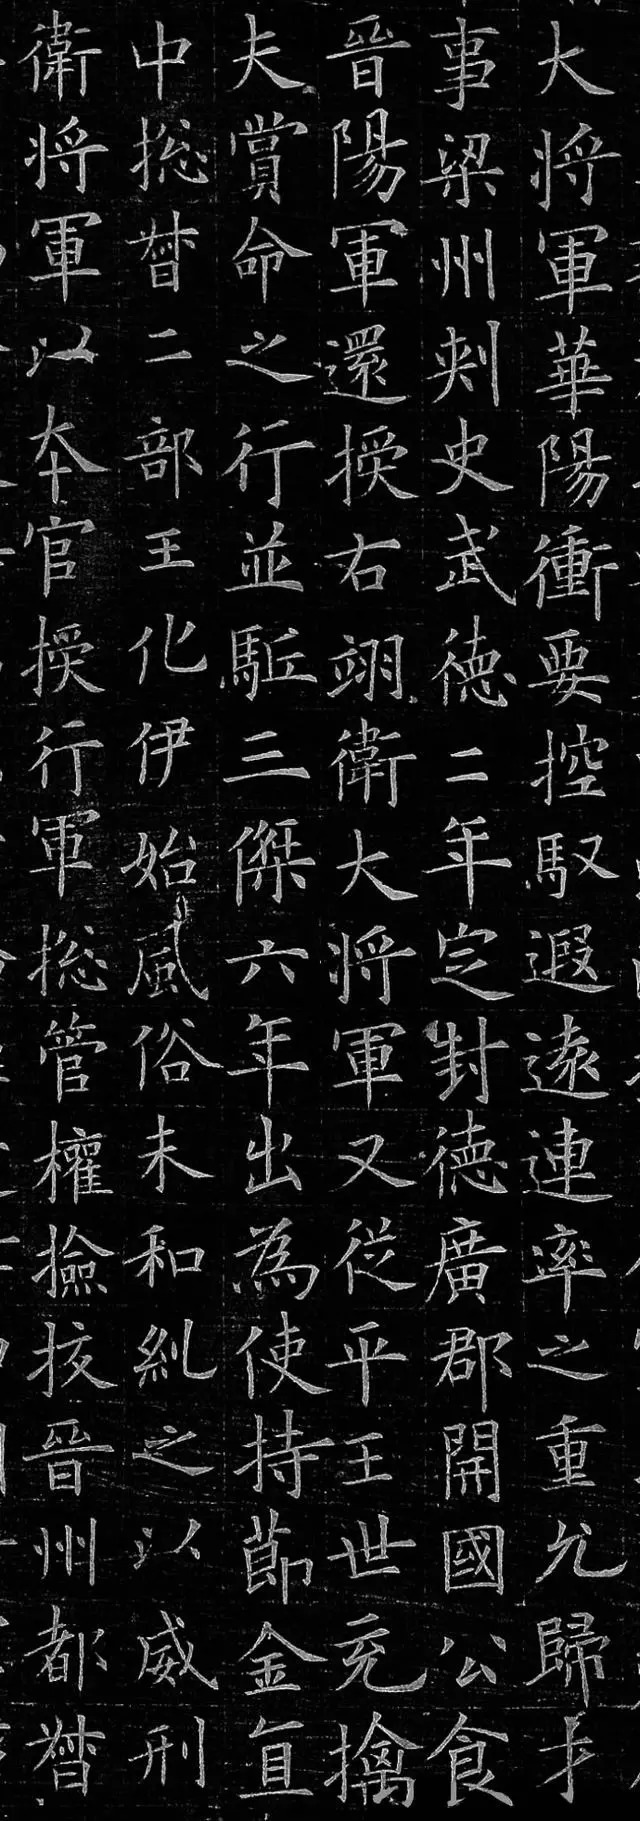 大将軍華陽衝要控馭遐遠連率之重允歸才
事梁州刺史武德二年定封德廣郡開國公食
晉陽軍還授右翊衛大将軍又從平王世充擒
夫賞命之行並駈三傑六年出為使持節金直
中揔督二部王化伊始風俗未和糺之以威刑
衛将軍以本官授行軍揔管權撿挍晉州都督